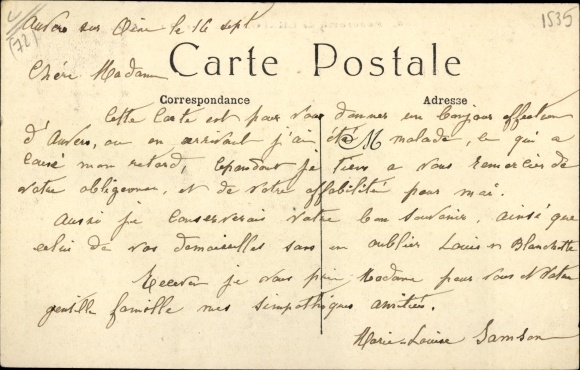 Auvers sur Oise le 16 sept
1535
(72)
Carte Postale
Chère Madame
Correspondance
Adresse
Cette Carte est pour vous donner un bonjour affectueux
d'Auvers, ou en arrivant j'ai été malade, ce qui a
M
causé mon retard, Cependant je tiens a vous remercier de
votre obligeance, et de votre affabilité pour moi.
Aussi je conserverais votre bon souvenir, ainsi que
celui de vos demoiselles sans en oublier Louis et Blanchette
Recevez je vous prie Madame pour vous et votre
gentille famille mes simpathiques amitiés.
Marie-Louise Samson